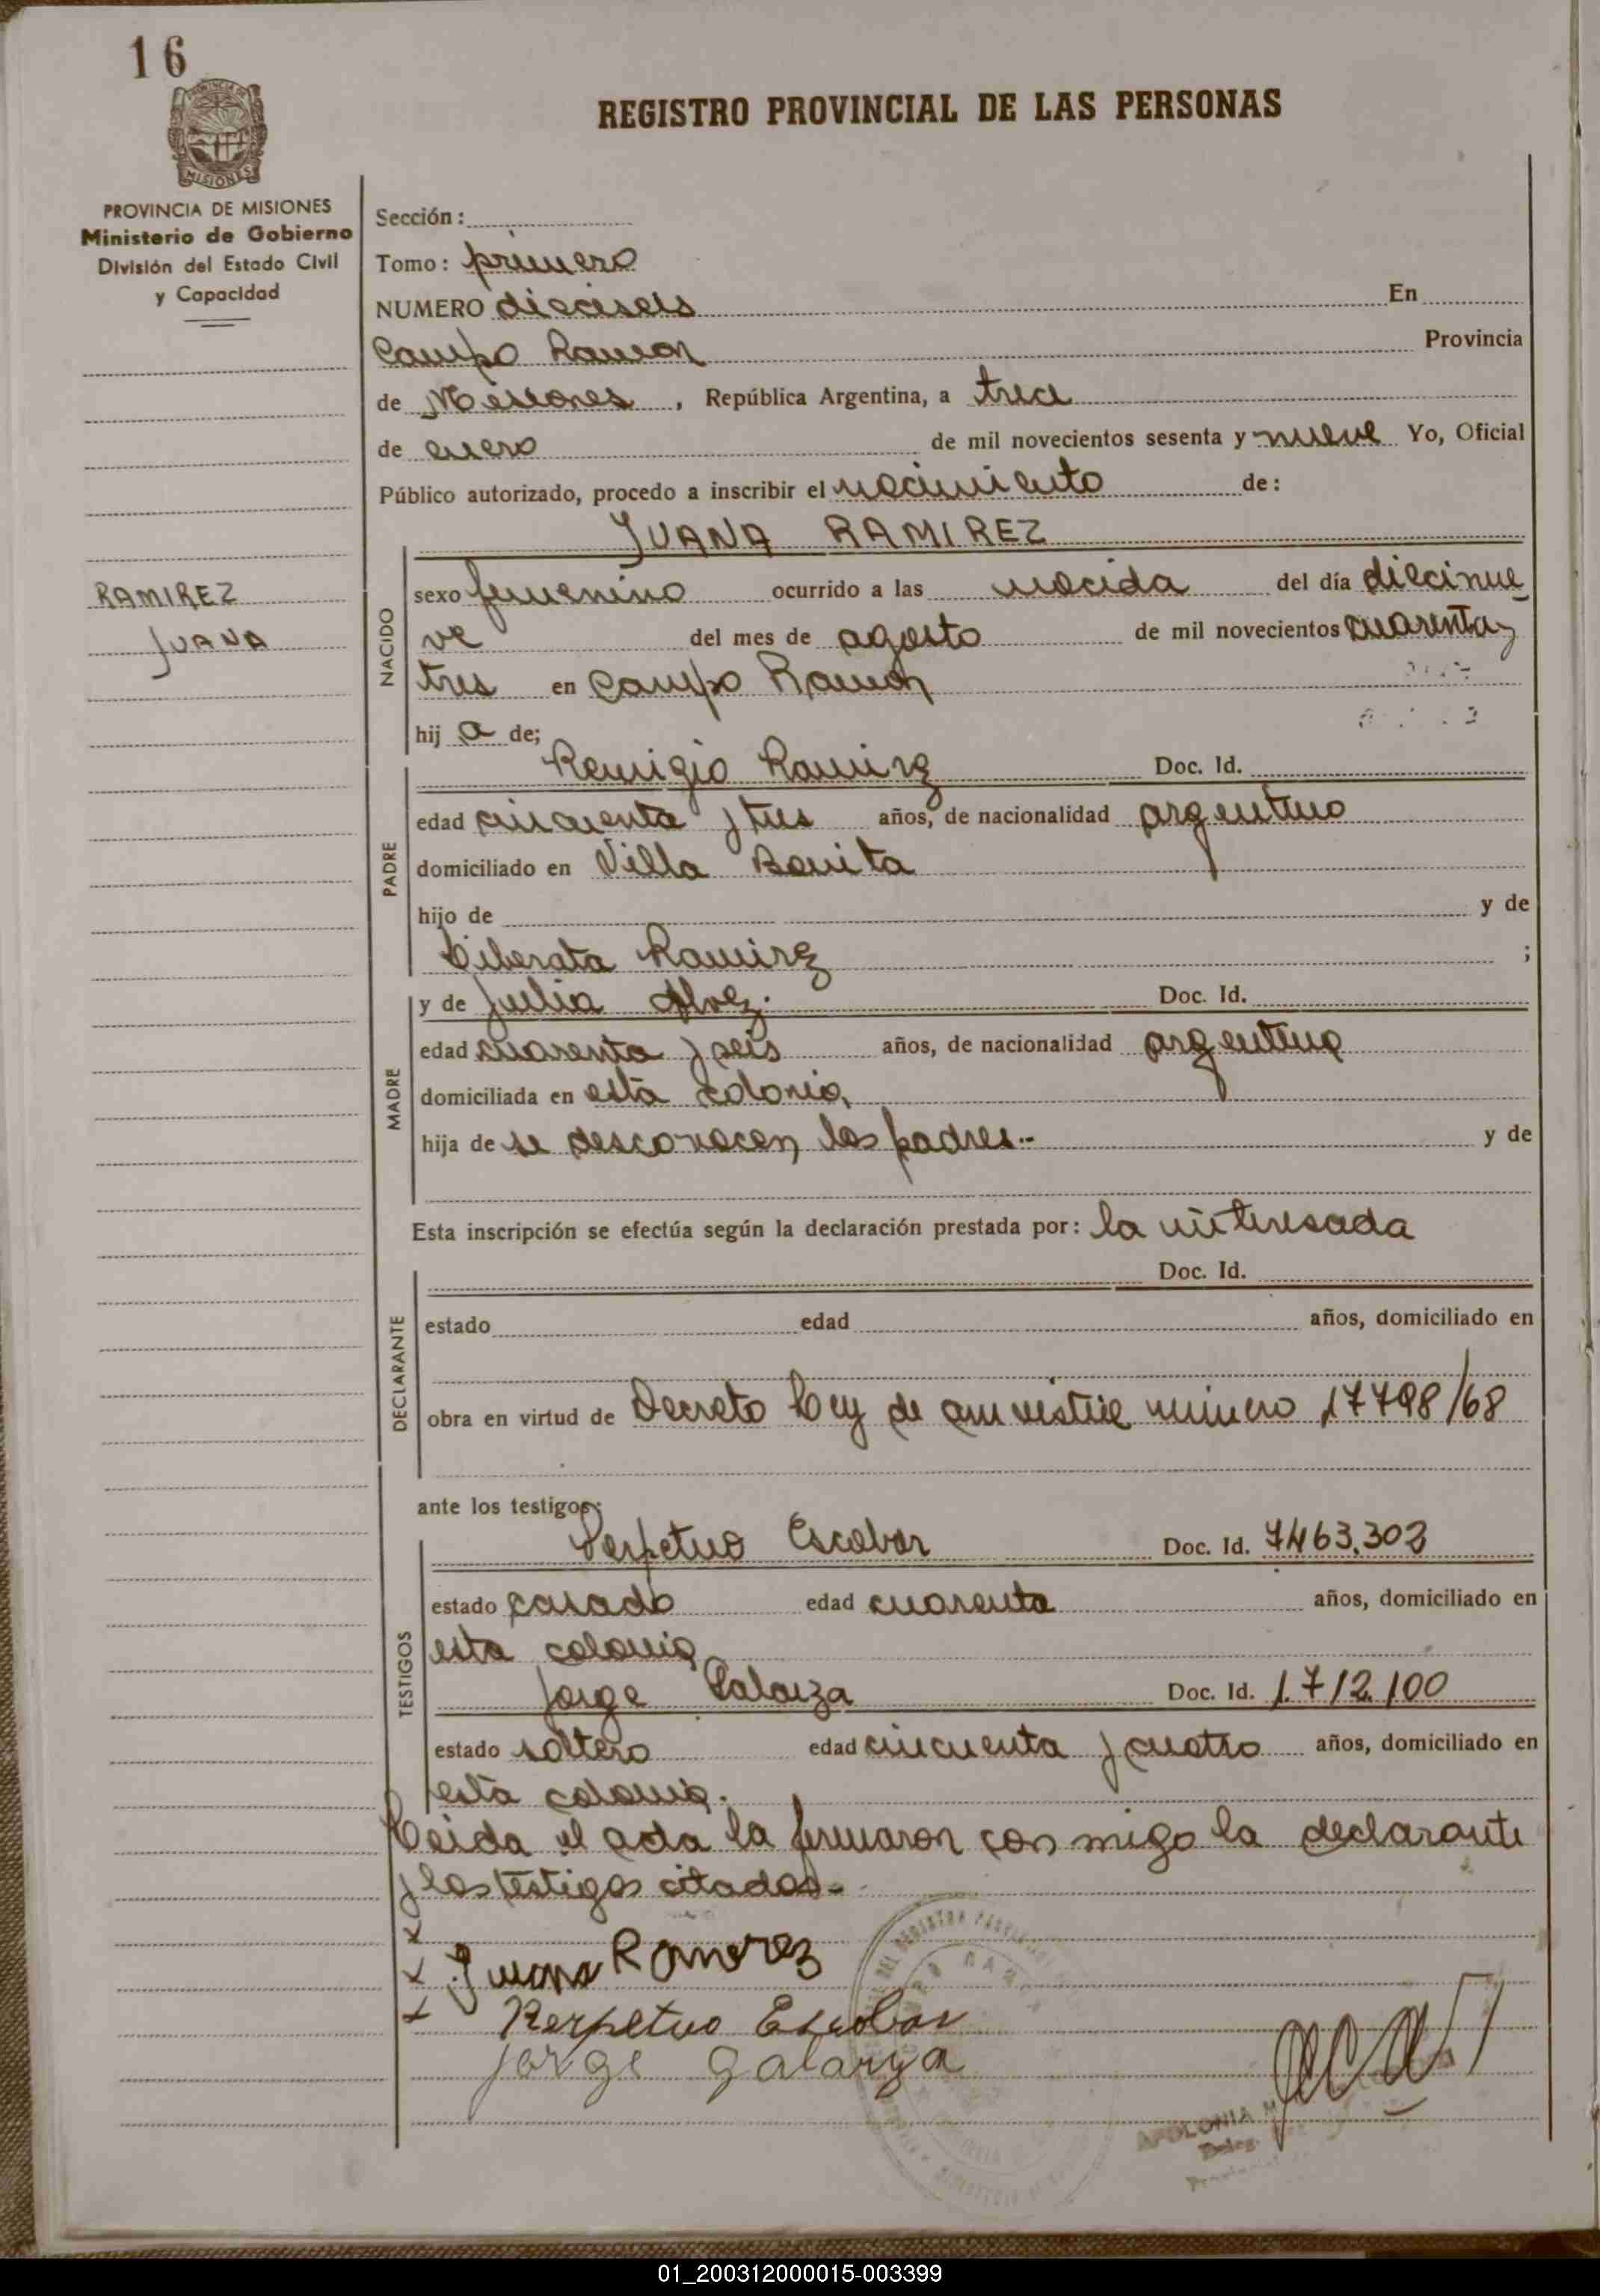 16
PROVINCIA DE
MISIONES
REGISTRO PROVINCIAL DE LAS PERSONAS
PROVINCIA DE MISIONES
Ministerio de Gobierno
División del Estado Civil
y Capacidad
RAMIREZ
JUANA
Sección:
Tomo: primero
NUMERO dieciseis En
Campo Ramon Provincia
de Misiones, República Argentina, a trece
de enero de mil novecientos sesenta y nueve Yo, Oficial
Público autorizado, procedo a inscribir el nacimiento de:
JUANA RAMIREZ
NACIDO
sexo femenino ocurrido a las nacida del día diecinue
ve del mes de agosto de mil novecientos cuarenta y
tres en Campo Ramon
hij a de;
PADRE
Remigio Ramirez Doc. Id.
edad cincuenta y tres años, de nacionalidad argentino
domiciliado en Villa Bonita
hijo de y de
Liberata Ramirez ;
MADRE
y de Julia Alvez. Doc. Id.
edad cuarenta y seis años, de nacionalidad argentina
domiciliada en esta colonia,
hija de se desconocen los padres.- y de
Esta inscripción se efectúa según la declaración prestada por: la interesada
DECLARANTE
Doc. Id.
estado edad años, domiciliado en
obra en virtud de Decreto Ley de amnistia numero 17798/68
ante los testigos:
TESTIGOS
Perpetuo Escobar Doc. Id. 7463.303
estado casado edad cuarenta años, domiciliado en
esta colonia
Jorge Galarza Doc. Id. 1.712.100
estado soltero edad cincuenta y cuatro años, domiciliado en
esta colonia.
Leida el acta la firmaron con migo la declarante
y los testigos citados.-
x
x Juana Ramirez
x Perpetuo Escobar
Jorge Galarza
APOLONIA
01_200312000015-003399